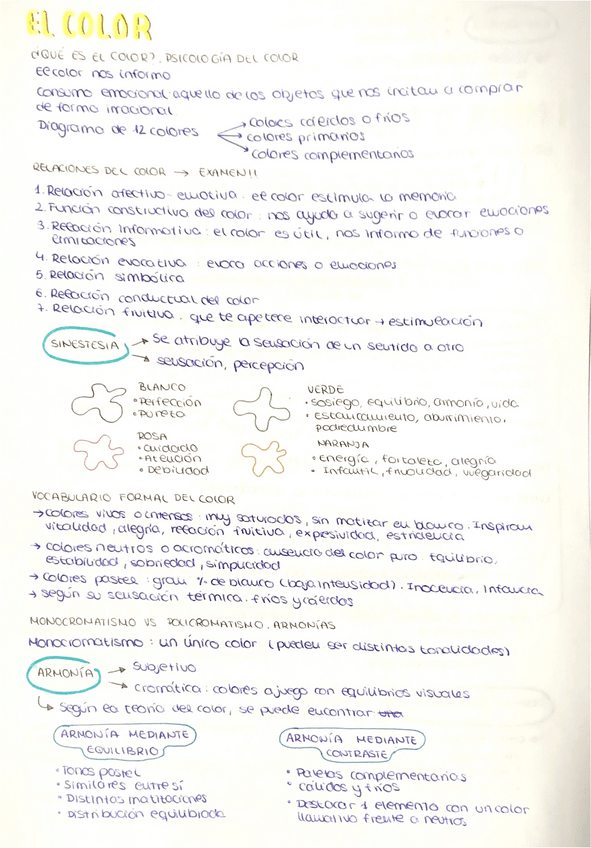 EL COLOR
¿QUÉ ES EL COLOR?. PSICOLOGÍA DEL COLOR
El color nos informa
Consumo emocional: aquello de los objetos que nos incitan a comprar
de forma irracional
Diagrama de 12 colores
colores cálidos o fríos
colores primarios
colores complementarios
RELACIONES DEL COLOR → EXAMEN!!
1. Relación afectivo-emotiva: el color estimula la memoria
2. Función constructiva del color: nos ayuda a sugerir o evocar emociones
3. Relación Informativa: el color es útil, nos informa de funciones o
limitaciones
4. Relación evocativa: evoca acciones o emociones
5. Relación simbólica
6. Relación conductual del color
7. Relación fruitiva. que te apetece interactuar → estimulación
SINESTESIA
→ Se atribuye la sensación de un sentido a otro
→ sensación, percepción
BLANCO
• Perfección
• Pureza
VERDE
• sosiego, equilibrio, armonía, vida
• estancamiento, aburrimiento,
podredumbre
ROSA
• cuidado
• Atención
• Debilidad
NARANJA
• Energía, fortaleza, alegría
• Infantil, frivolidad, vulgaridad
VOCABULARIO FORMAL DEL COLOR
→ colores vivos o intensos: muy saturados, sin matizar en blanco. Inspiran
vitalidad, alegría, relación fruitiva, expresividad, estridencia
→ colores neutros o acromáticos: ausencia del color puro. Equilibrio,
estabilidad, sobriedad, simplicidad
→ colores pastel: gran % de blanco (baja intensidad). Inocencia, Infancia
→ según su sensación térmica. fríos y cálidos
MONOCROMATISMO VS POLICROMATISMO. ARMONÍAS
Monocromatismo: un único color (pueden ser distintas tonalidades)
ARMONÍA
→ Subjetivo
→ cromática: colores a juego con equilibrios visuales
↳ Según la teoría del color, se puede encontrar
ARMONÍA MEDIANTE
EQUILIBRIO
• Tonos pastel
• Similares entre sí
• Distintas matizaciones
• Distribución equilibrada
ARMONÍA MEDIANTE
CONTRASTE
• Paletas complementarias
• cálidos y fríos
• Destacar 1 elemento con un color
llamativo frente a neutros